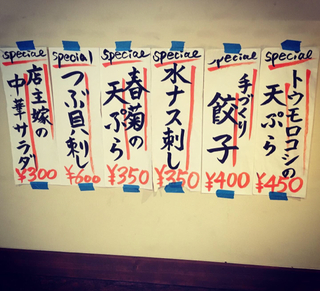 special
トウモロコシの
天ぷら
¥450
special
手づくり
餃子
¥400
special
水ナス刺し
¥350
special
春菊の
天ぷら
¥350
special
つぶ貝刺し
¥600
special
店主嫁の
中華サラダ
¥300